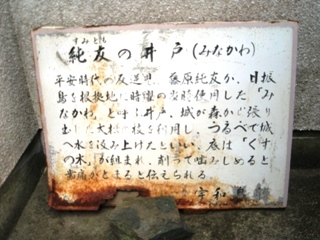 すみとも
純友の井戸(みなかわ)
平安時代の反逆児、藤原純友が、日振
島を根拠地に時曜の当時使用した「み
なかわ」と呼ぶ井戸、城が森から張り
出した大樹の枝を利用し、つるべで城
へ水を汲み上げたといい、底は「くす
の木」が組まれ、削って噛みしめると
歯痛がとまると伝えられる
宇和